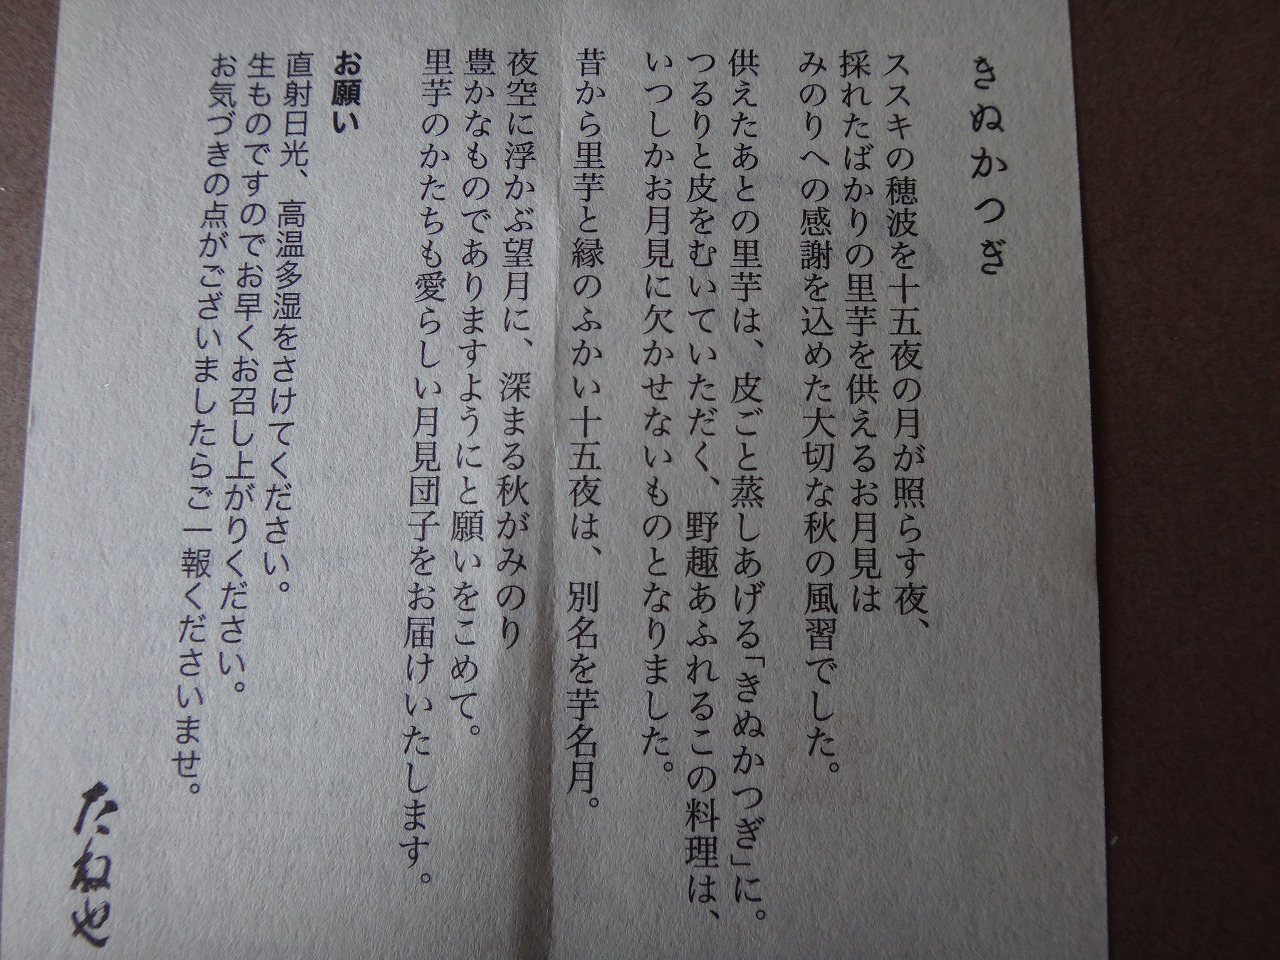 きぬかつぎ
ススキの穂波を十五夜の月が照らす夜、
採れたばかりの里芋を供えるお月見は
みのりへの感謝を込めた大切な秋の風習でした。
供えたあとの里芋は、皮ごと蒸しあげる「きぬかつぎ」に。
つるりと皮をむいていただく、野趣あふれるこの料理は、
いつしかお月見に欠かせないものとなりました。
昔から里芋と縁のふかい十五夜は、別名を芋名月。
夜空に浮かぶ望月に、深まる秋がみのり
豊かなものでありますようにと願いをこめて。
里芋のかたちも愛らしい月見団子をお届けいたします。
お願い
直射日光、高温多湿をさけてください。
生ものですのでお早くお召し上がりください。
お気づきの点がございましたらご一報くださいませ。
たねや